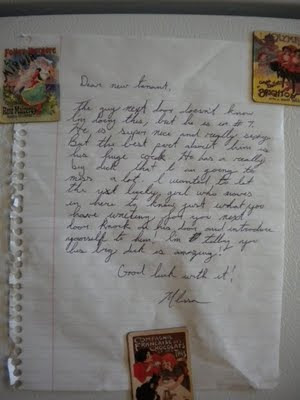 FOLIES-BERGÈRE
OLYMPIA
BRIGHTON
Dear new tennant,
The guy next door doesn't know
I'm doing this, but he is in # 7.
He is super nice and really sexy.
But the best part about him is
his huge cock. He has a really
big dick that I am going to
miss a lot. I wanted to let
the next lucky girl who moves
in here to know just what you
have waiting for you next
door. Knock on his door and introduce
yourself to him. I'm telling you
his big dick is amazing!
Good luck with it!
COMPAGNIE
FRANÇAISE DES
CHOCOLATS